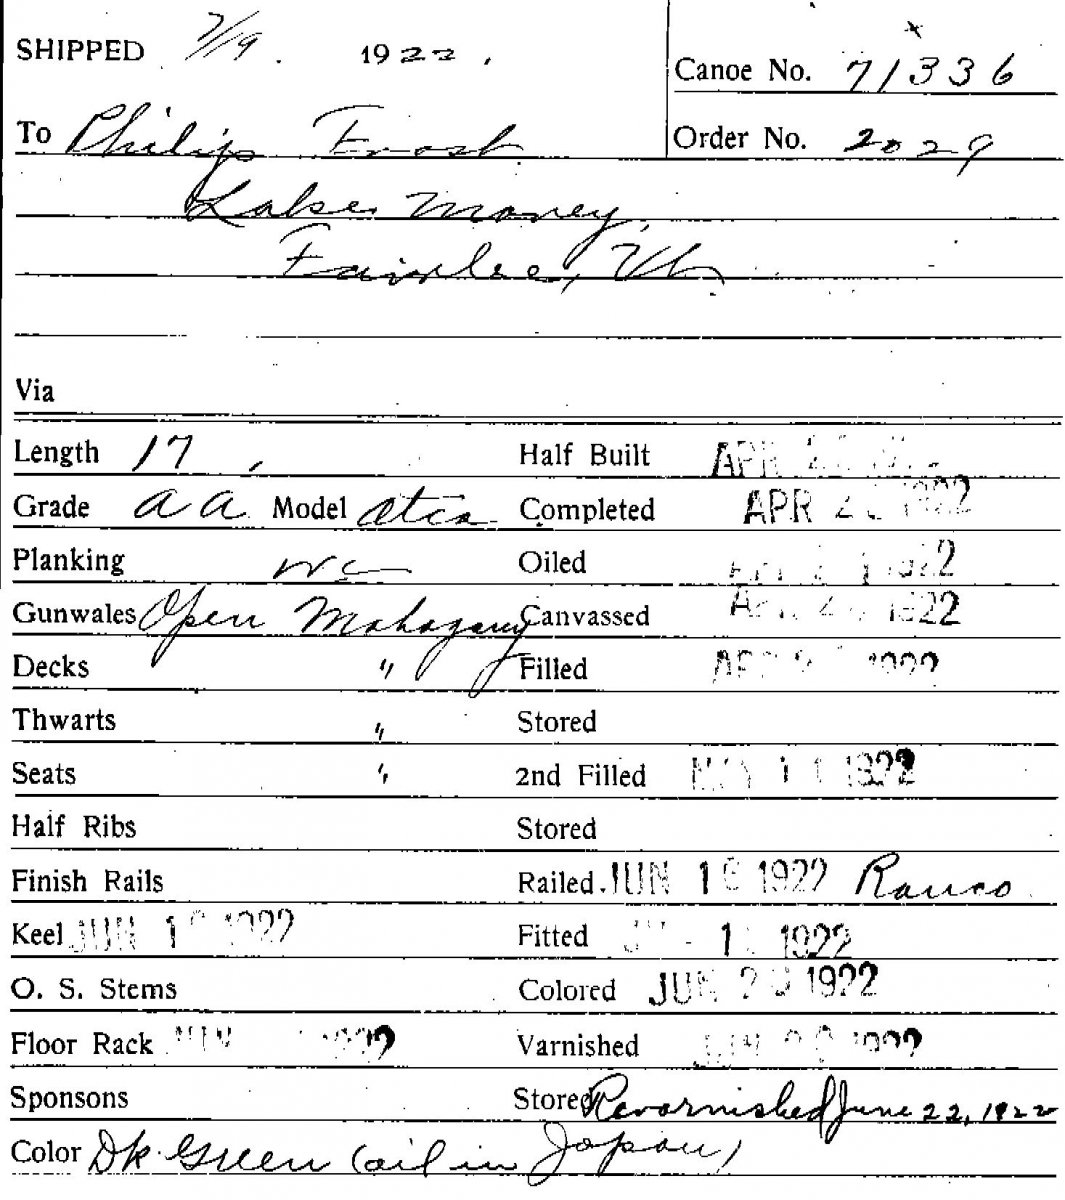 SHIPPED 7/19. 1922.
Canoe No. 71336
To Philip Frost
Order No. 2029
Lake Morey,
Fairlee, Vt
Via
Length 17, Half Built APR
Grade AA Model Otca Completed APR 1922
Planking WC Oiled 1922
Gunwales Open Mahogany Canvassed 1922
Decks " Filled 1922
Thwarts " Stored
Seats " 2nd Filled MAY 11 1922
Half Ribs Stored
Finish Rails Railed JUN 1922
Keel JUN 1922 Fitted 1922
O. S. Stems Colored JUN 1922
Floor Rack 1922 Varnished 1922
Sponsons Stored Revarnished June 22, 1922
Color Dk. Green (oil in Japan)